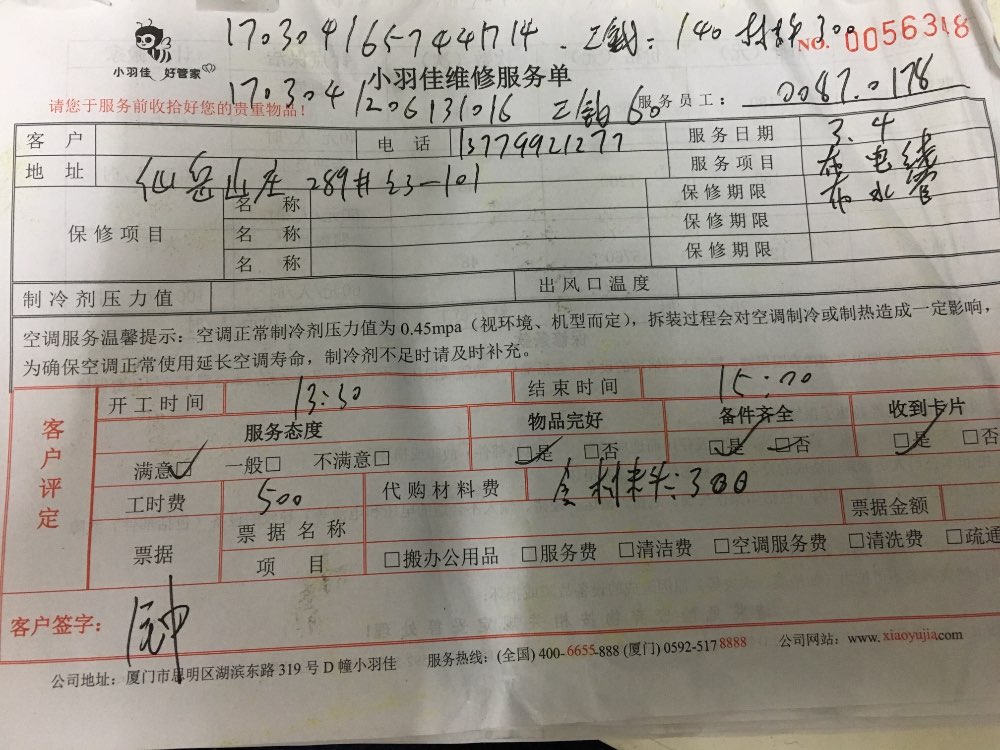 170304165744714.工钱:140材料300
NO. 0056318
小羽佳 好管家
小羽佳维修服务单
请您于服务前收拾好您的贵重物品!
1703041206131016 工钱60
服务员工: 0087.0178
客户 电话 13779921277 服务日期 3.4
地址 仙岳山庄289# 503-101 服务项目 布电线
布水管
保修项目 名称 保修期限
名称 保修期限
名称 保修期限
制冷剂压力值 出风口温度
空调服务温馨提示:空调正常制冷剂压力值为 0.45mpa(视环境、机型而定),拆装过程会对空调制冷或制热造成一定影响,
为确保空调正常使用延长空调寿命,制冷剂不足时请及时补充。
客户评定
开工时间 13:30 结束时间 15:00
服务态度 物品完好 备件齐全 收到卡片
满意☑ 一般□ 不满意□ ☑是 □否 ☑是 □否 ☑是 □否
工时费 500 代购材料费 含材料:300
票据 票据名称 票据金额
项目 □搬办公用品 □服务费 □清洁费 □空调服务费 □清洗费 □疏通
客户签字:
公司地址:厦门市思明区湖滨东路 319 号 D 幢小羽佳 服务热线:(全国) 400-6655-888 (厦门) 0592-517 8888 公司网站:www.xiaoyujia.com